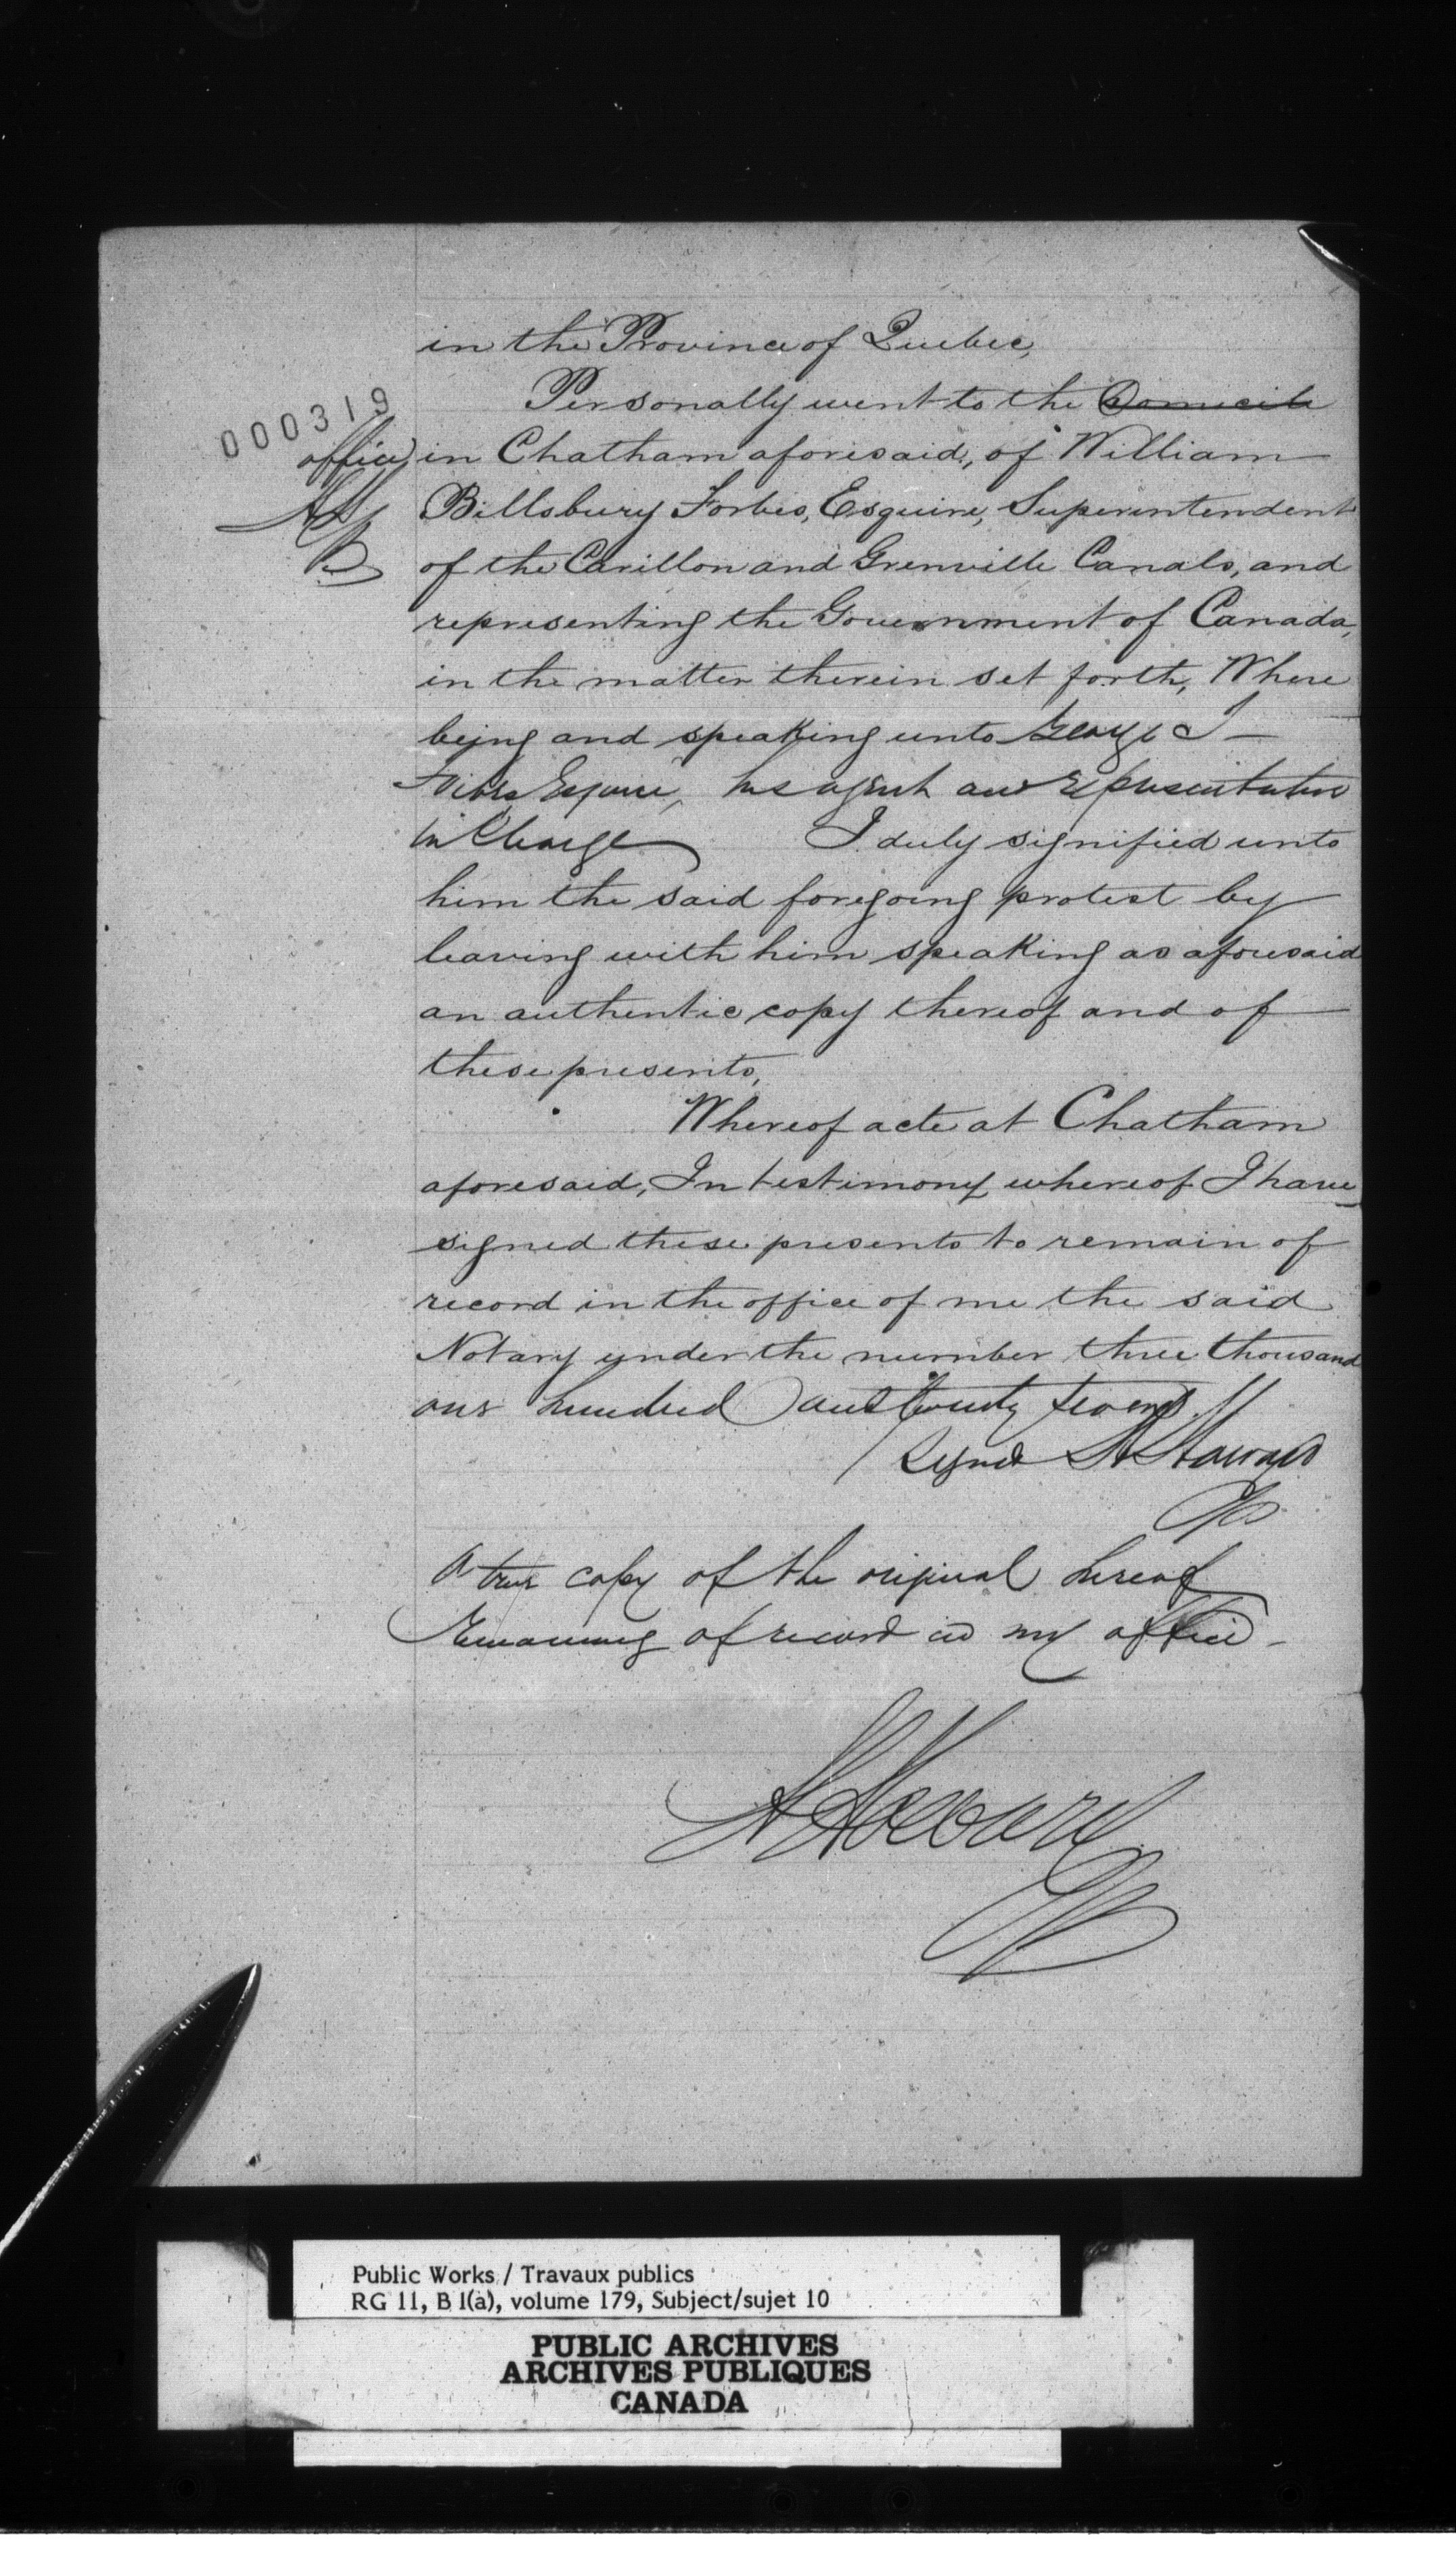 in the Province of Quebec,
Personally went to the Domicile
000319
office in Chatham aforesaid, of William
Billsbury Forbes, Esquire, Superintendent
of the Carillon and Grenville Canals, and
representing the Government of Canada,
in the matter therein set forth, Where
being and speaking unto George
Esquire, his agent and representative
in Charge I duly signified unto
him the said foregoing protest by
leaving with him speaking as aforesaid
an authentic copy thereof and of
these presents,
Whereof acte at Chatham
aforesaid, In testimony whereof I have
signed these presents to remain of
record in the office of me the said
Notary under the number three thousand
one hundred and twenty
Signed A Howard
NP
A true copy of the original hereof
remaining of record in my office -
A Howard
NP
Public Works / Travaux publics
RG 11, B 1(a), volume 179, Subject/sujet 10
PUBLIC ARCHIVES
ARCHIVES PUBLIQUES
CANADA